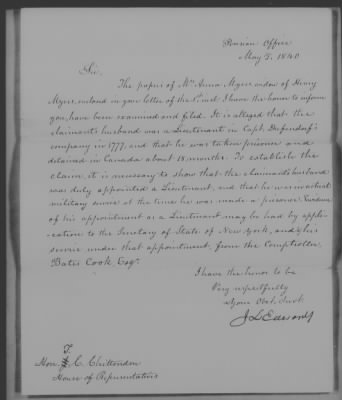 Pension Office
May 5. 1840
Sir,
The papers of Mrs. Anna Myers widow of Henry
Myers, enclosed in your letter of the 1st inst. I have the honor to inform
you, have been examined and filed. It is alleged that the
claimant's husband was a Lieutenant in Capt. Defendorf's
company in 1777, and that he was taken prisoner and
detained in Canada about 18 months. To establish the
claim, it is necessary to show that the claimant's husband
was duly appointed a Lieutenant, and that he was in actual
military service at the time he was made a prisoner. Evidence
of his appointment as a Lieutenant may be had by appli-
cation to the Secretary of State of New York, and of his
service under that appointment, from the Comptroller,
Bates Cook Esqr.
I have the honor to be
Very respectfully
Your Obdt. Servt.
J L Edwards
T.
Hon. J. C. Chittenden
House of Representatives